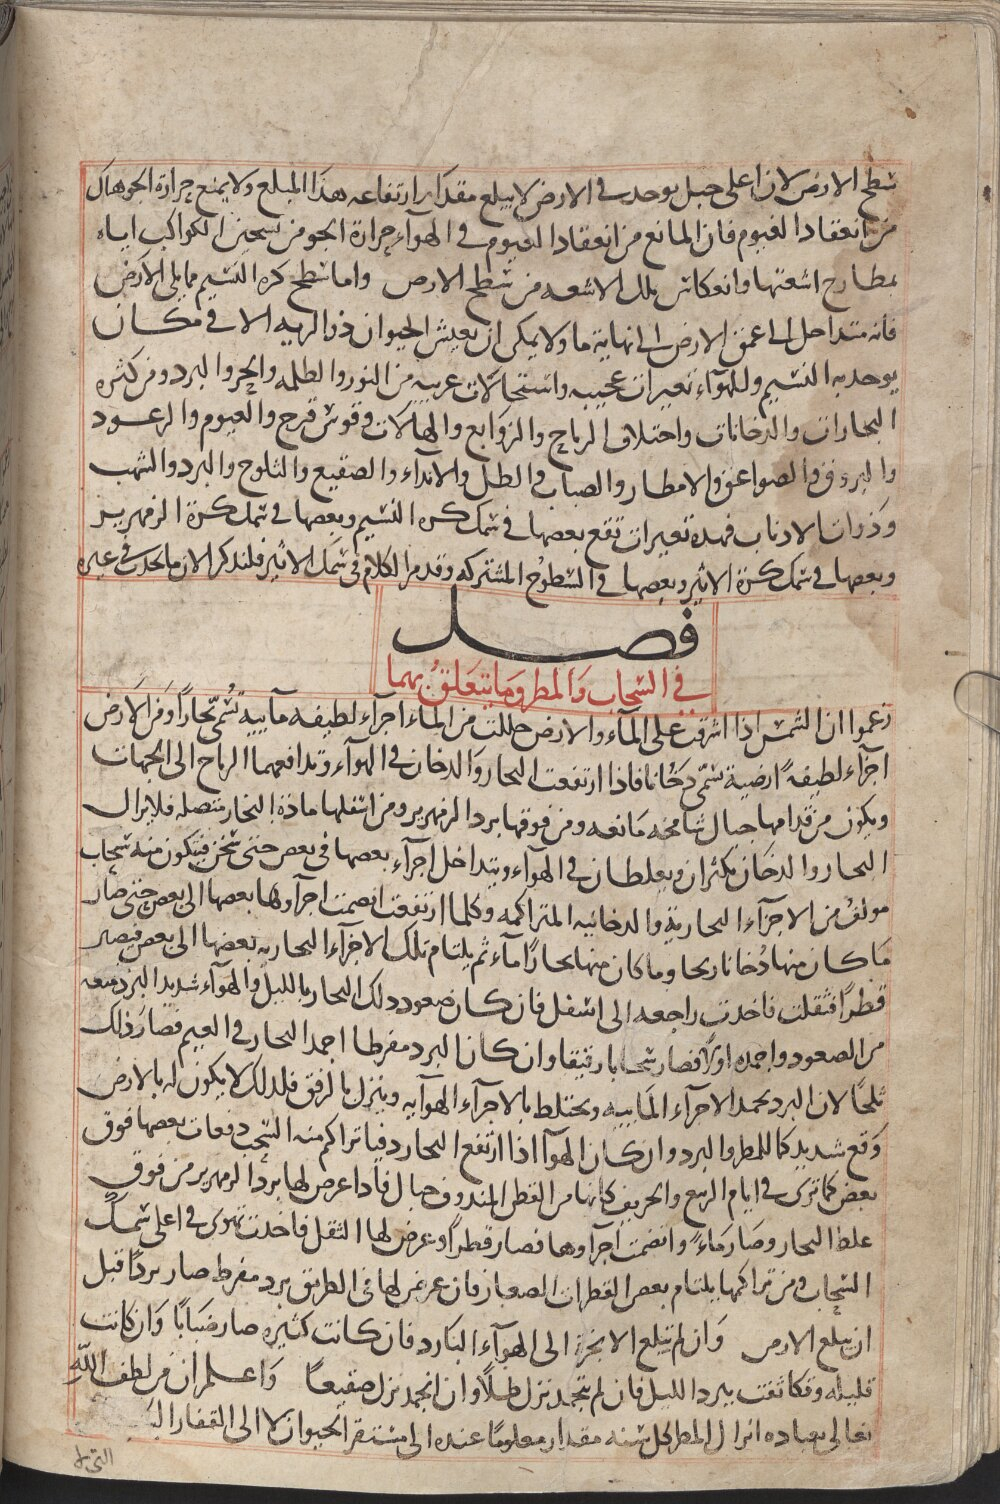 سطح الارض لان اعلى جبل يوجد فى الارض لا يبلغ مقدار ارتفاعه هذا المبلغ ولا يمنع حرارة الجو هناك
من انعقاد الغيوم فان المانع من انعقاد الغيوم فى الهواء حرارة الجو من تسخين الكواكب اياه
بمطارح اشعتها وانعكاس تلك الاشعه من سطح الارض واما سطح كره النسيم مما يلى الارض
فانه متداخل الى عمق الارض الى نهاية ما ولا يمكن ان يعيش الحيوان ذو الريه الا فى مكان
يوجد به النسيم وللهواء تغيرات عجيبه واستحالات غريبه من النور والظلمه والحر والبرد ومن كثره
البخارات والدخانات واختلاف الرياح والزوابع والهالات وقوس قزح والغيوم والرعود
والبروق والصواعق والامطار والضباب والطل والانداء والصقيع والثلوج والبرد والشهب
وذوات الاذناب فهذه تغيرات تقع بعضها فى سمك كره النسيم وبعضها فى سمك كرة الزمهرير
وبعضها فى سمك كرة الاثير وبعضها فى السطوح المشتركه وقد مر الكلام فى سمك الاثير فلنذكر الان ما يحدث فى غيره
فصل
فى السحاب والمطر وما يتعلق بهما
زعموا ان الشمس اذا اشرقت على المآء والارض حللت من الماء اجزاء لطيفه مآييه تسمى بخارا ومن الارض
اجزاء لطيفة ارضية تسمى دخانا فاذا ارتفعت البخار والدخان فى الهواء وتدافعهما الرياح الى الجهات
ويكون من قدامها جبال شامخه مانعه ومن فوقها برد الزمهرير ومن اسفلها مادة البخار متصله فلا يزال
البخار والدخان يكثران ويغلظان فى الهواء ويتداخل اجزاء بعضها فى بعض حتى سخن فيتكون منه سحاب
مولف من الاجزاء البخارية والدخانيه المتراكمه وكلما ارتفعت انضمت اجزاوها بعضها الى بعض حتى صار
ما كان منها دخانا ريحا وما كان منها بخارا مآء ثم يلتام تلك الاجزاء البخاريه بعضها الى بعض فيصير
قطرا فثقلت فاخذت راجعه الى اسفل فان كان صعود ذلك البخار بالليل والهواء شديد البرد منعه
من الصعود واجمده اولا فصار سحابا رقيقا وان كان البرد مفرطا اجمد البخار فى الغيم فصار ذلك
ثلجا لان البرد يجمد الاجزاء المايية ويختلط بالاجزاء الهوآيه وينزل بالرفق فلذلك لا يكون له بالارض
وقع شديد كما للمطر والبرد وان كان الهوآ اذا ارتفع البخار دفيا تراكم منه السحب دفعات بعضها فوق
بعض كما ترى فى ايام الربيع والخريف كانها من القطن المندوف جبال فاذا عرض لها برد الزمهرير من فوق
غلظ البخار وصار ماء وانضمت اجزاوها فصار قطرا وعرض لها الثقل فاخذت تهوى فى اعلى سمك
السحاب ومن تراكمها يلتام بعض القطرات الصغار فان عرض لها فى الطريق برد مفرط صار بردا قبل
ان يبلغ الارض وان لم تبلغ الابخرة الى الهواء البارد فان كانت كثيره صار ضبابا وان كانت
قليله وتكاثفت ببرد الليل فان لم تجمد نزل طلا وان انجمد نزل صقيعا واعلم ان من لطف الله
تعالى بعباده انزال المطر كل سنه مقدار معلوما عنده الى مستقر الحيوان لا الى القفار
التى